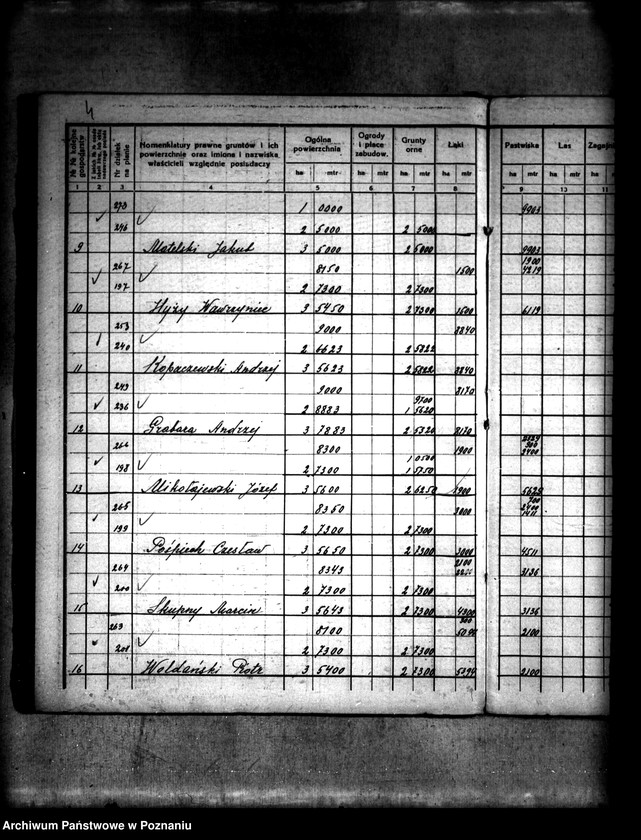 4
№ № kolejne gospodarstw
Nr działek na planie
Nomenklatury prawne gruntów i ich powierzchnie oraz imiona i nazwiska właścicieli względnie posiadaczy
Ogólna powierzchnia
Ogrody i place zabudow.
Grunty orne
Łąki
Pastwiska
Las
ha mtr ha mtr ha mtr ha mtr ha mtr ha mtr ha
1 2 3 4 5 6 7 8 9 13 11
293 1 0000 9903
296 2 5000 2 5000
9 Matelski Jakub 3 5000 2 5000 9903
267 8150 1500 1900 4219
197 2 7300 2 7300
10 Hyży Wawrzyniec 3 5450 2 7300 1500 6119
253 9000 3840
240 2 6623 2 5822
11 Kopaczewski Andrzej 3 5623 2 5822 3840
249 9000 8170
236 2 8883 9700 1 5620
12 Grabara Andrzej 3 7883 2 5320 8170
266 8300 1900 2400
198 2 7300 1 0500 1 5750
13 Mikołajewski Józef 3 5600 2 6250 1900 5625
265 8350 3000 700 2400 1411
199 2 7300 2 7300
14 Pośpiech Czesław 3 5650 2 7300 3000 4511
264 8343 2100 3136
200 2 7300 2 7300
15 Skupny Marcin 3 5643 2 7300 4300 3136
263 8100 300 2100
201 2 7300 2 7300
16 Woldański Piotr 3 5400 2 7300 5294 2100
Archiwum Państwowe w Poznaniu